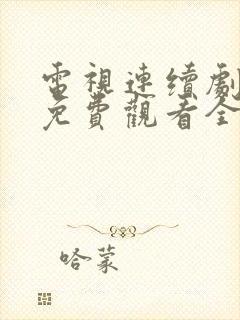 電視連續劇
免費觀看全
哈蒙